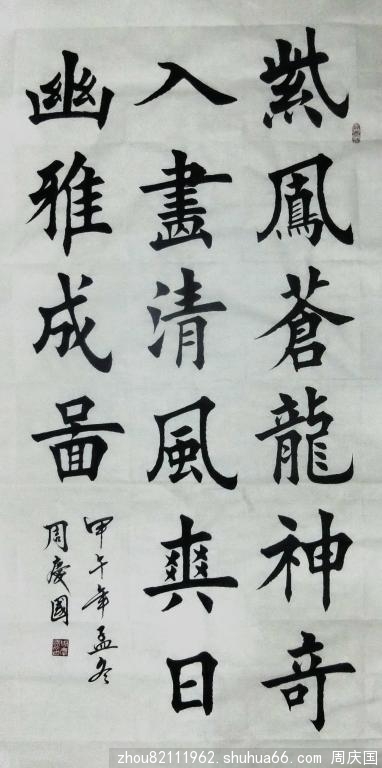 紫鳳蒼龍神奇
入畫清風爽日
幽雅成啚
甲午年孟冬
周慶國
zhou82111962.shuhua66.com 周庆国